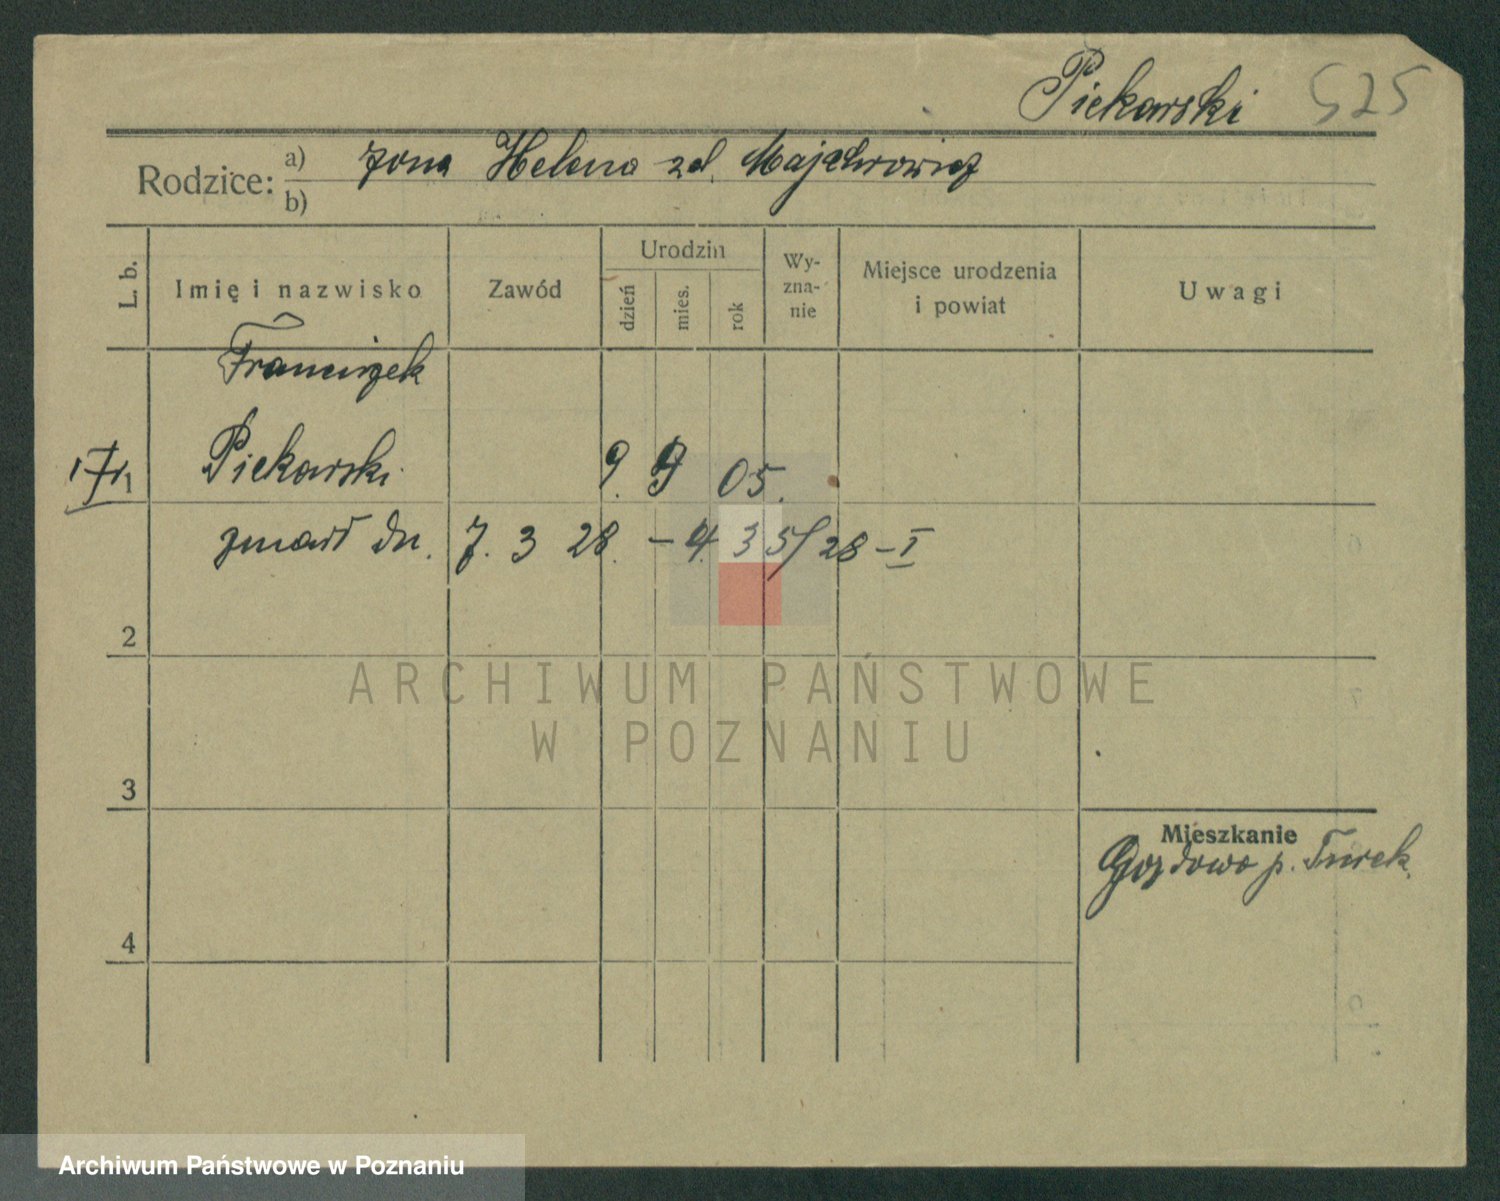 Piekarski 525
Rodzice: a) żona Helena zd. Majchrowicz
b)
L. b. Imię i nazwisko Zawód Urodzin dzień mies. rok Wyzna-nie Miejsce urodzenia i powiat Uwagi
Franciszek
Piekarski 9. 9 05.
1
zmarł dn. 7. 3 28. – 4. 35/28 – I
2
ARCHIWUM PAŃSTWOWE
W POZNANIU
3
Mieszkanie
Gozdowo p. Turek.
4
Archiwum Państwowe w Poznaniu